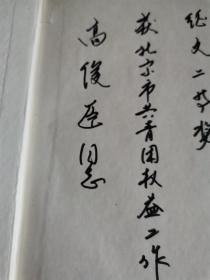 高俊臣同志
获北京市共青团权益工作
论文二等奖